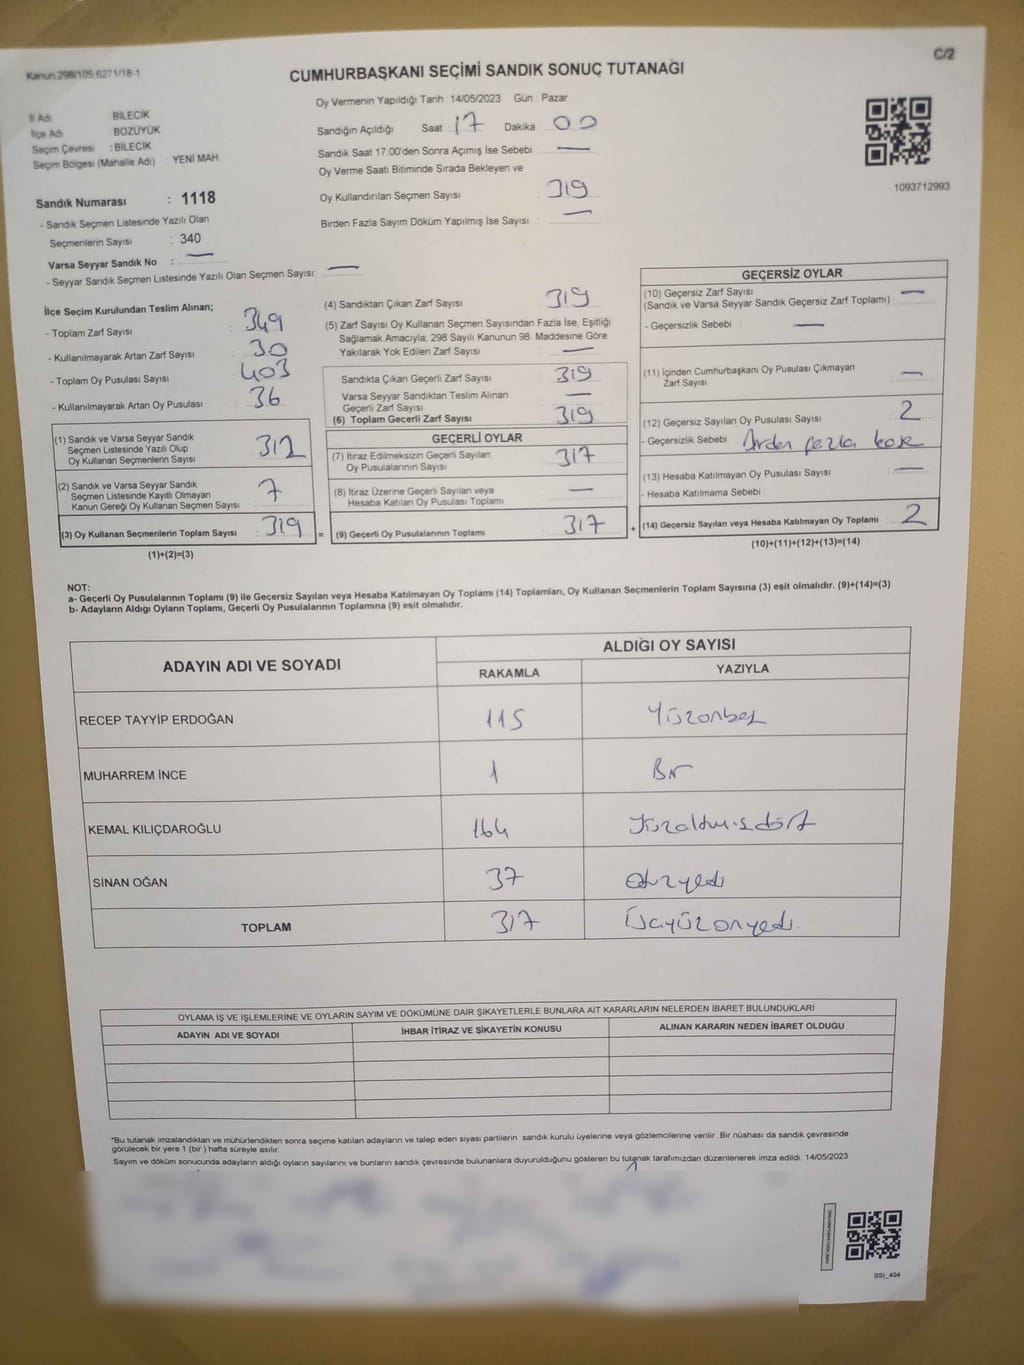 Kanun.298/105.6271/18-1
C/2
CUMHURBAŞKANI SEÇİMİ SANDIK SONUÇ TUTANAĞI
Oy Vermenin Yapıldığı Tarih 14/05/2023 Gün : Pazar
İl Adı BİLECİK
İlçe Adı BOZÜYÜK
Seçim Çevresi : BİLECİK
Seçim Bölgesi (Mahalle Adı) : YENİ MAH.
Sandığın Açıldığı Saat : 17 Dakika : 00
Sandık Saat 17:00'den Sonra Açımış İse Sebebi : —
Oy Verme Saati Bitiminde Sırada Bekleyen ve
Oy Kullandırılan Seçmen Sayısı : 319
Birden Fazla Sayım Döküm Yapılmış İse Sayısı : —
1093712993
Sandık Numarası : 1118
- Sandık Seçmen Listesinde Yazılı Olan
Seçmenlerin Sayısı : 340
Varsa Seyyar Sandık No : —
- Seyyar Sandık Seçmen Listesinde Yazılı Olan Seçmen Sayısı: —
İlçe Seçim Kurulundan Teslim Alınan;
- Toplam Zarf Sayısı : 349
- Kullanılmayarak Artan Zarf Sayısı : 30
- Toplam Oy Pusulası Sayısı : 403
- Kullanılmayarak Artan Oy Pusulası : 36
(1) Sandık ve Varsa Seyyar Sandık
Seçmen Listesinde Yazılı Olup
Oy Kullanan Seçmenlerin Sayısı : 312
(2) Sandık ve Varsa Seyyar Sandık
Seçmen Listesinde Kayıtlı Olmayan
Kanun Gereği Oy Kullanan Seçmen Sayısı : 7
(3) Oy Kullanan Seçmenlerin Toplam Sayısı : 319 =
(1)+(2)=(3)
(4) Sandıktan Çıkan Zarf Sayısı : 319
(5) Zarf Sayısı Oy Kullanan Seçmen Sayısından Fazla İse, Eşitliği
Sağlamak Amacıyla; 298 Sayılı Kanunun 98. Maddesine Göre
Yakılarak Yok Edilen Zarf Sayısı : —
Sandıkta Çıkan Geçerli Zarf Sayısı : 319
Varsa Seyyar Sandıktan Teslim Alınan
Geçerli Zarf Sayısı : —
(6) Toplam Geçerli Zarf Sayısı : 319
GEÇERLİ OYLAR
(7) İtiraz Edilmeksizin Geçerli Sayılan
Oy Pusulalarının Sayısı : 317
(8) İtiraz Üzerine Geçerli Sayılan veya
Hesaba Katılan Oy Pusulası Toplamı : —
(9) Geçerli Oy Pusulalarının Toplamı : 317 +
GEÇERSİZ OYLAR
(10) Geçersiz Zarf Sayısı : —
(Sandık ve Varsa Seyyar Sandık Geçersiz Zarf Toplamı)
- Geçersizlik Sebebi : —
(11) İçinden Cumhurbaşkanı Oy Pusulası Çıkmayan
Zarf Sayısı : —
(12) Geçersiz Sayılan Oy Pusulası Sayısı : 2
- Geçersizlik Sebebi : Birden fazla kaşe
(13) Hesaba Katılmayan Oy Pusulası Sayısı : —
- Hesaba Katılmama Sebebi :
(14) Geçersiz Sayılan veya Hesaba Katılmayan Oy Toplamı : 2
(10)+(11)+(12)+(13)=(14)
NOT:
a- Geçerli Oy Pusulalarının Toplamı (9) ile Geçersiz Sayılan veya Hesaba Katılmayan Oy Toplamı (14) Toplamları, Oy Kullanan Seçmenlerin Toplam Sayısına (3) eşit olmalıdır. (9)+(14)=(3)
b- Adayların Aldığı Oyların Toplamı, Geçerli Oy Pusulalarının Toplamına (9) eşit olmalıdır.
ADAYIN ADI VE SOYADI ALDIĞI OY SAYISI
RAKAMLA YAZIYLA
RECEP TAYYİP ERDOĞAN 115 Yüzonbeş
MUHARREM İNCE 1 Bir
KEMAL KILIÇDAROĞLU 164 Yüzaltmışdört
SİNAN OĞAN 37 otuzyedi
TOPLAM 317 Üçyüzonyedi.
OYLAMA İŞ VE İŞLEMLERİNE VE OYLARIN SAYIM VE DÖKÜMÜNE DAİR ŞİKAYETLERLE BUNLARA AİT KARARLARIN NELERDEN İBARET BULUNDUKLARI
ADAYIN ADI VE SOYADI İHBAR İTİRAZ VE ŞİKAYETİN KONUSU ALINAN KARARIN NEDEN İBARET OLDUĞU
*Bu tutanak imzalandıktan ve mühürlendikten sonra seçime katılan adayların ve talep eden siyasi partilerin sandık kurulu üyelerine veya gözlemcilerine verilir. Bir nüshası da sandık çevresinde
görülecek bir yere 1 (bir) hafta süreyle asılır.
Sayım ve döküm sonucunda adayların aldığı oyların sayılarını ve bunların sandık çevresinde bulunanlara duyurulduğunu gösteren bu tutanak tarafımızdan düzenlenerek imza edildi. 14/05/2023
SSI_404